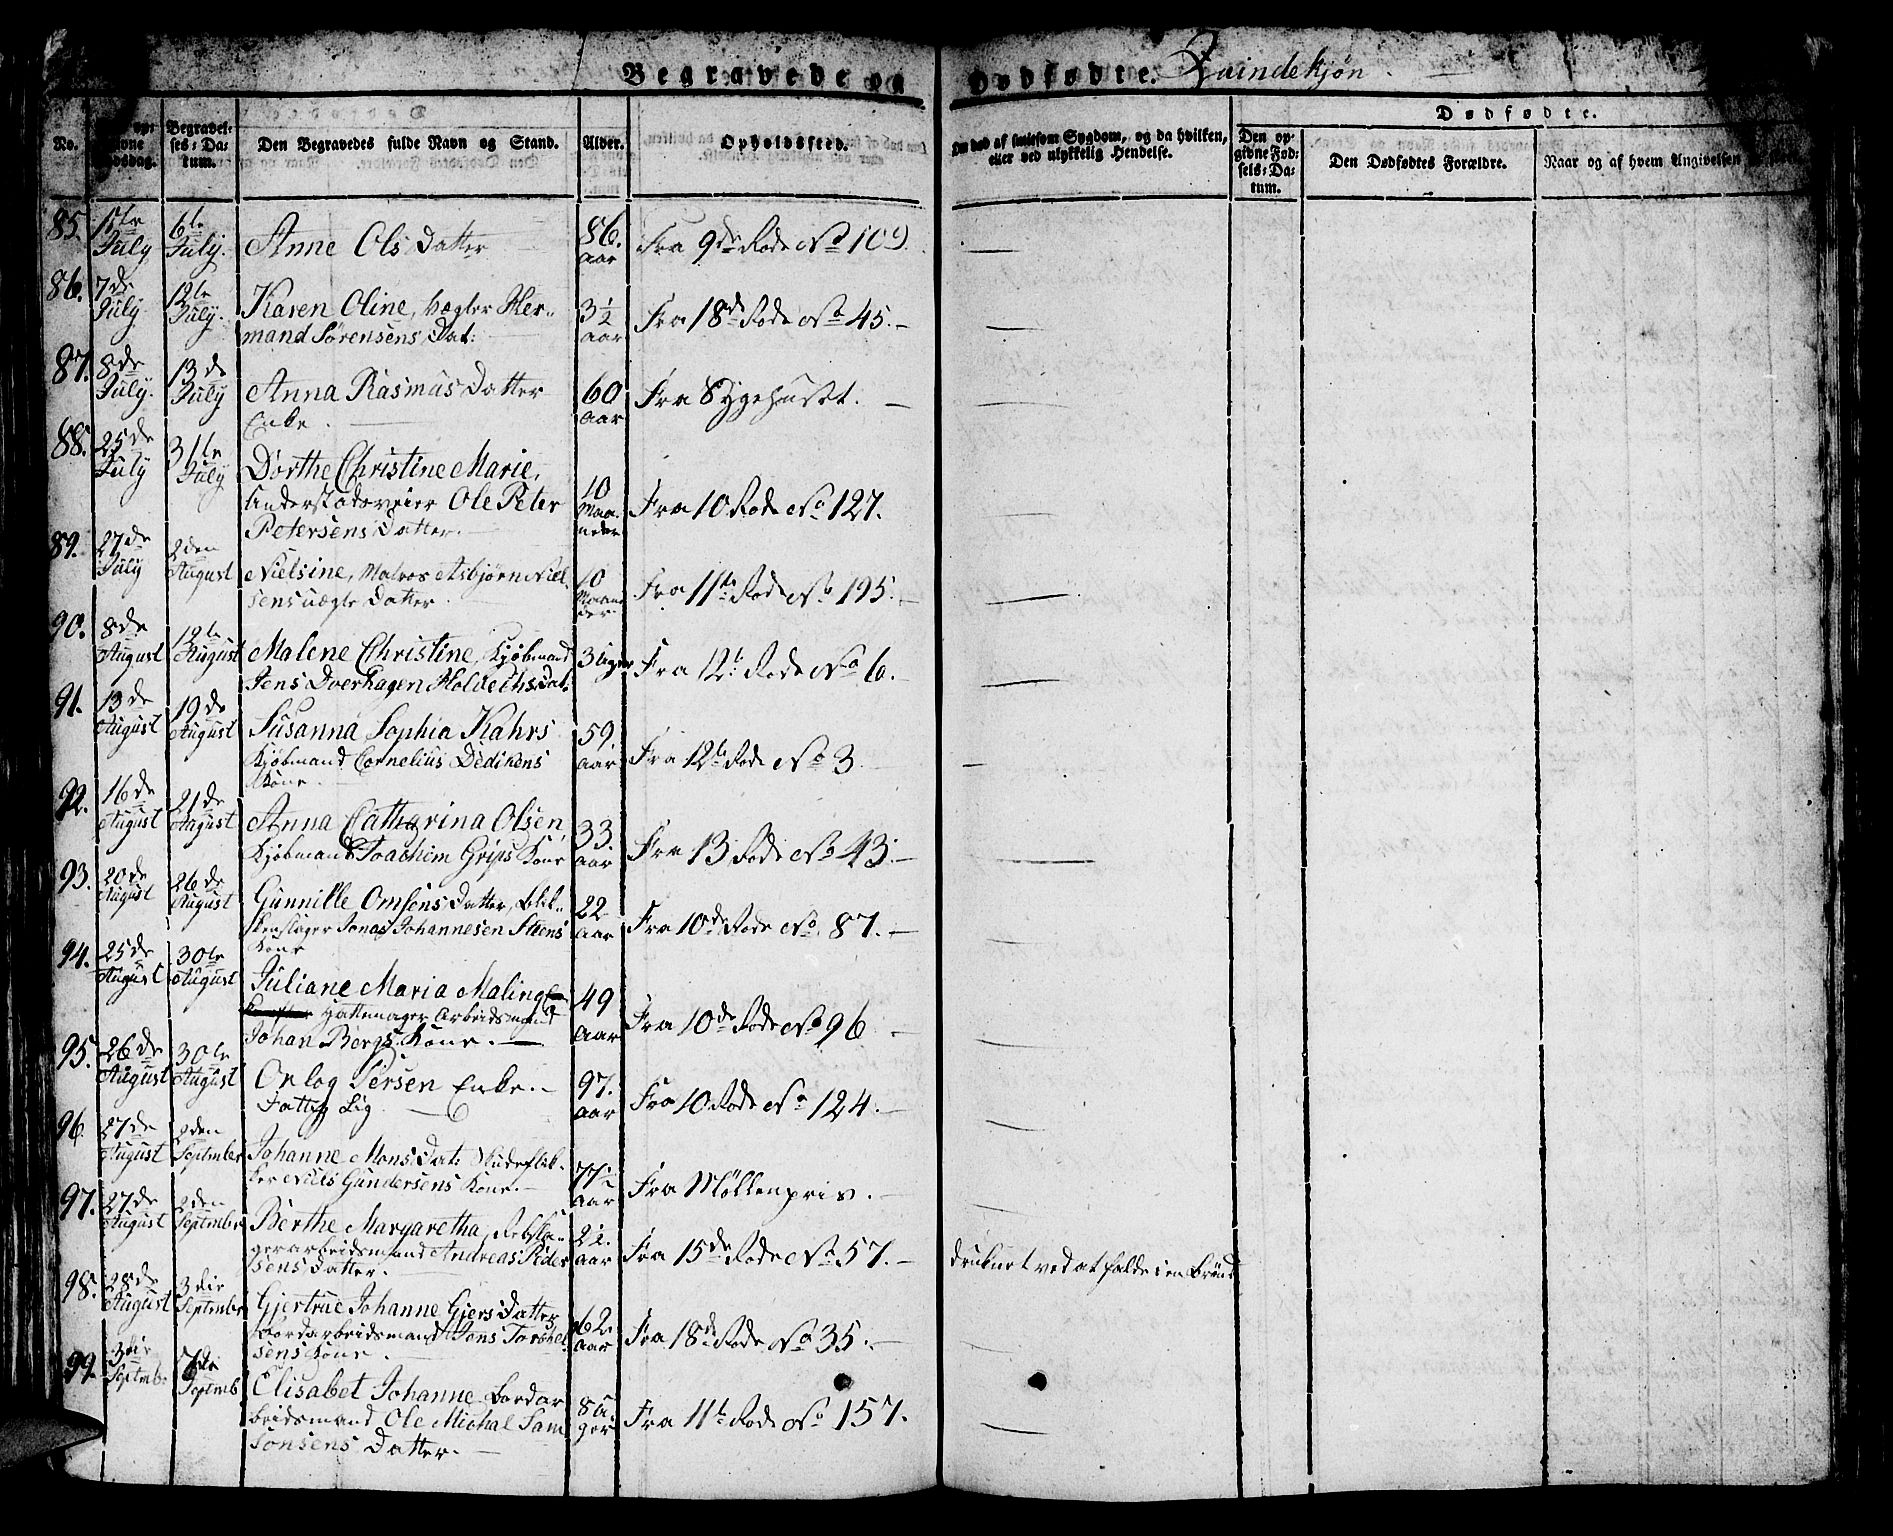 Begravede og Dødfødte. Qvindekjøn
No. Begravelses-Datum. Den Begravedes fulde Navn og Stand. Alder. Opholdssted. Om død af smitsom Sygdom, og da hvilken, eller ved ulykkelig Hendelse.
Dødfødte.
Den opgivne Fødsels-Datum. Den Dødfødtes Forældre. Naar og af hvem Angivelsen
85. 1ste July 6te July. Anne Ols Datter 86. Aar Fra 9de Rode No 109.
86. 7de July 12te July. Karen Oline, Vægter Her-
mand Sørensens Dat: 3½ Aar Fra 18de Rode No 45.
87. 8de July. 13de July Anna Rasmus Datter
Enke. 60 Aar Fra Sygehuset.
88. 25de July 31te July Dorthe Christine Marie,
Ole Peter
Petersens Datter. 10 Maaneder Fra 10 Rode No 127.
89. 27de July 2den August Nielsine, Matros Asbjørn Niel-
sens uægte Datter. 10 Maaneder Fra 11te Rode No 195.
90. 8de August 12te August Malene Christine, Kjøbmand
Jens Overhagen Dat: 3 Uger Fra 12te Rode No 6.
91. 13de August 19de August Susanna Sophia Kahrs
Kjøbmand Cornelius Dedikens
Kone. 59. Aar Fra 12te Rode No 3
92. 16de August 21de August Anna Cathrina Olsen,
Kjøbmand Joachim Grips Kone 33. Aar Fra 13 Rode No 43.
93. 20de August 26de August Gunnille Omsens Datter, Blik-
kenslager Jonas Johannesen Steens
Kone 22 Aar Fra 10de Rode No 87.
94. 25de August 30te August Juliane Maria Maling
Hattemager Arbeidsmand
Johan Bergs Kone. 49 Aar Fra 10de Rode No 96
95. 26de August 30te August Persen Enke.
Fattig Lig 97. Aar Fra 10 Rode No 124.
96. 27de August 2den September Johanne Mons Dat: Skudeflik-
ker Niels Gundersens Kone. 77½ Aar Fra Møllenpris.
97. 27de August 2den September Berthe Margaretha, Rebsla-
gerarbeidsmand Andreas Peder
sens Datter. 2½. Aar Fra 15de Rode No 57. druknet ved at falde i en Brønd
98. 28de August 3die September Gjertrue Johanne Gjers Datter
Bordarbeidsmand Jens Torkel
sens Kone. 62. Aar Fra 18de Rode No 35.
99. 3die Septmb: 7de Septmb Elisabet Johanne Bordar
beidsmand Ole Michal Sam
sonsens Datter. 8 Uger Fra 11te Rode No 157.